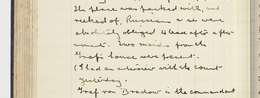 The place was packed with, not
reeked of, Russians & we were
absolutely obliged to leave after a few
moments. Two maids from the
Graf's house were present.
(I had an interview with the Count
yesterday.
Graf von Bredow is the commandant